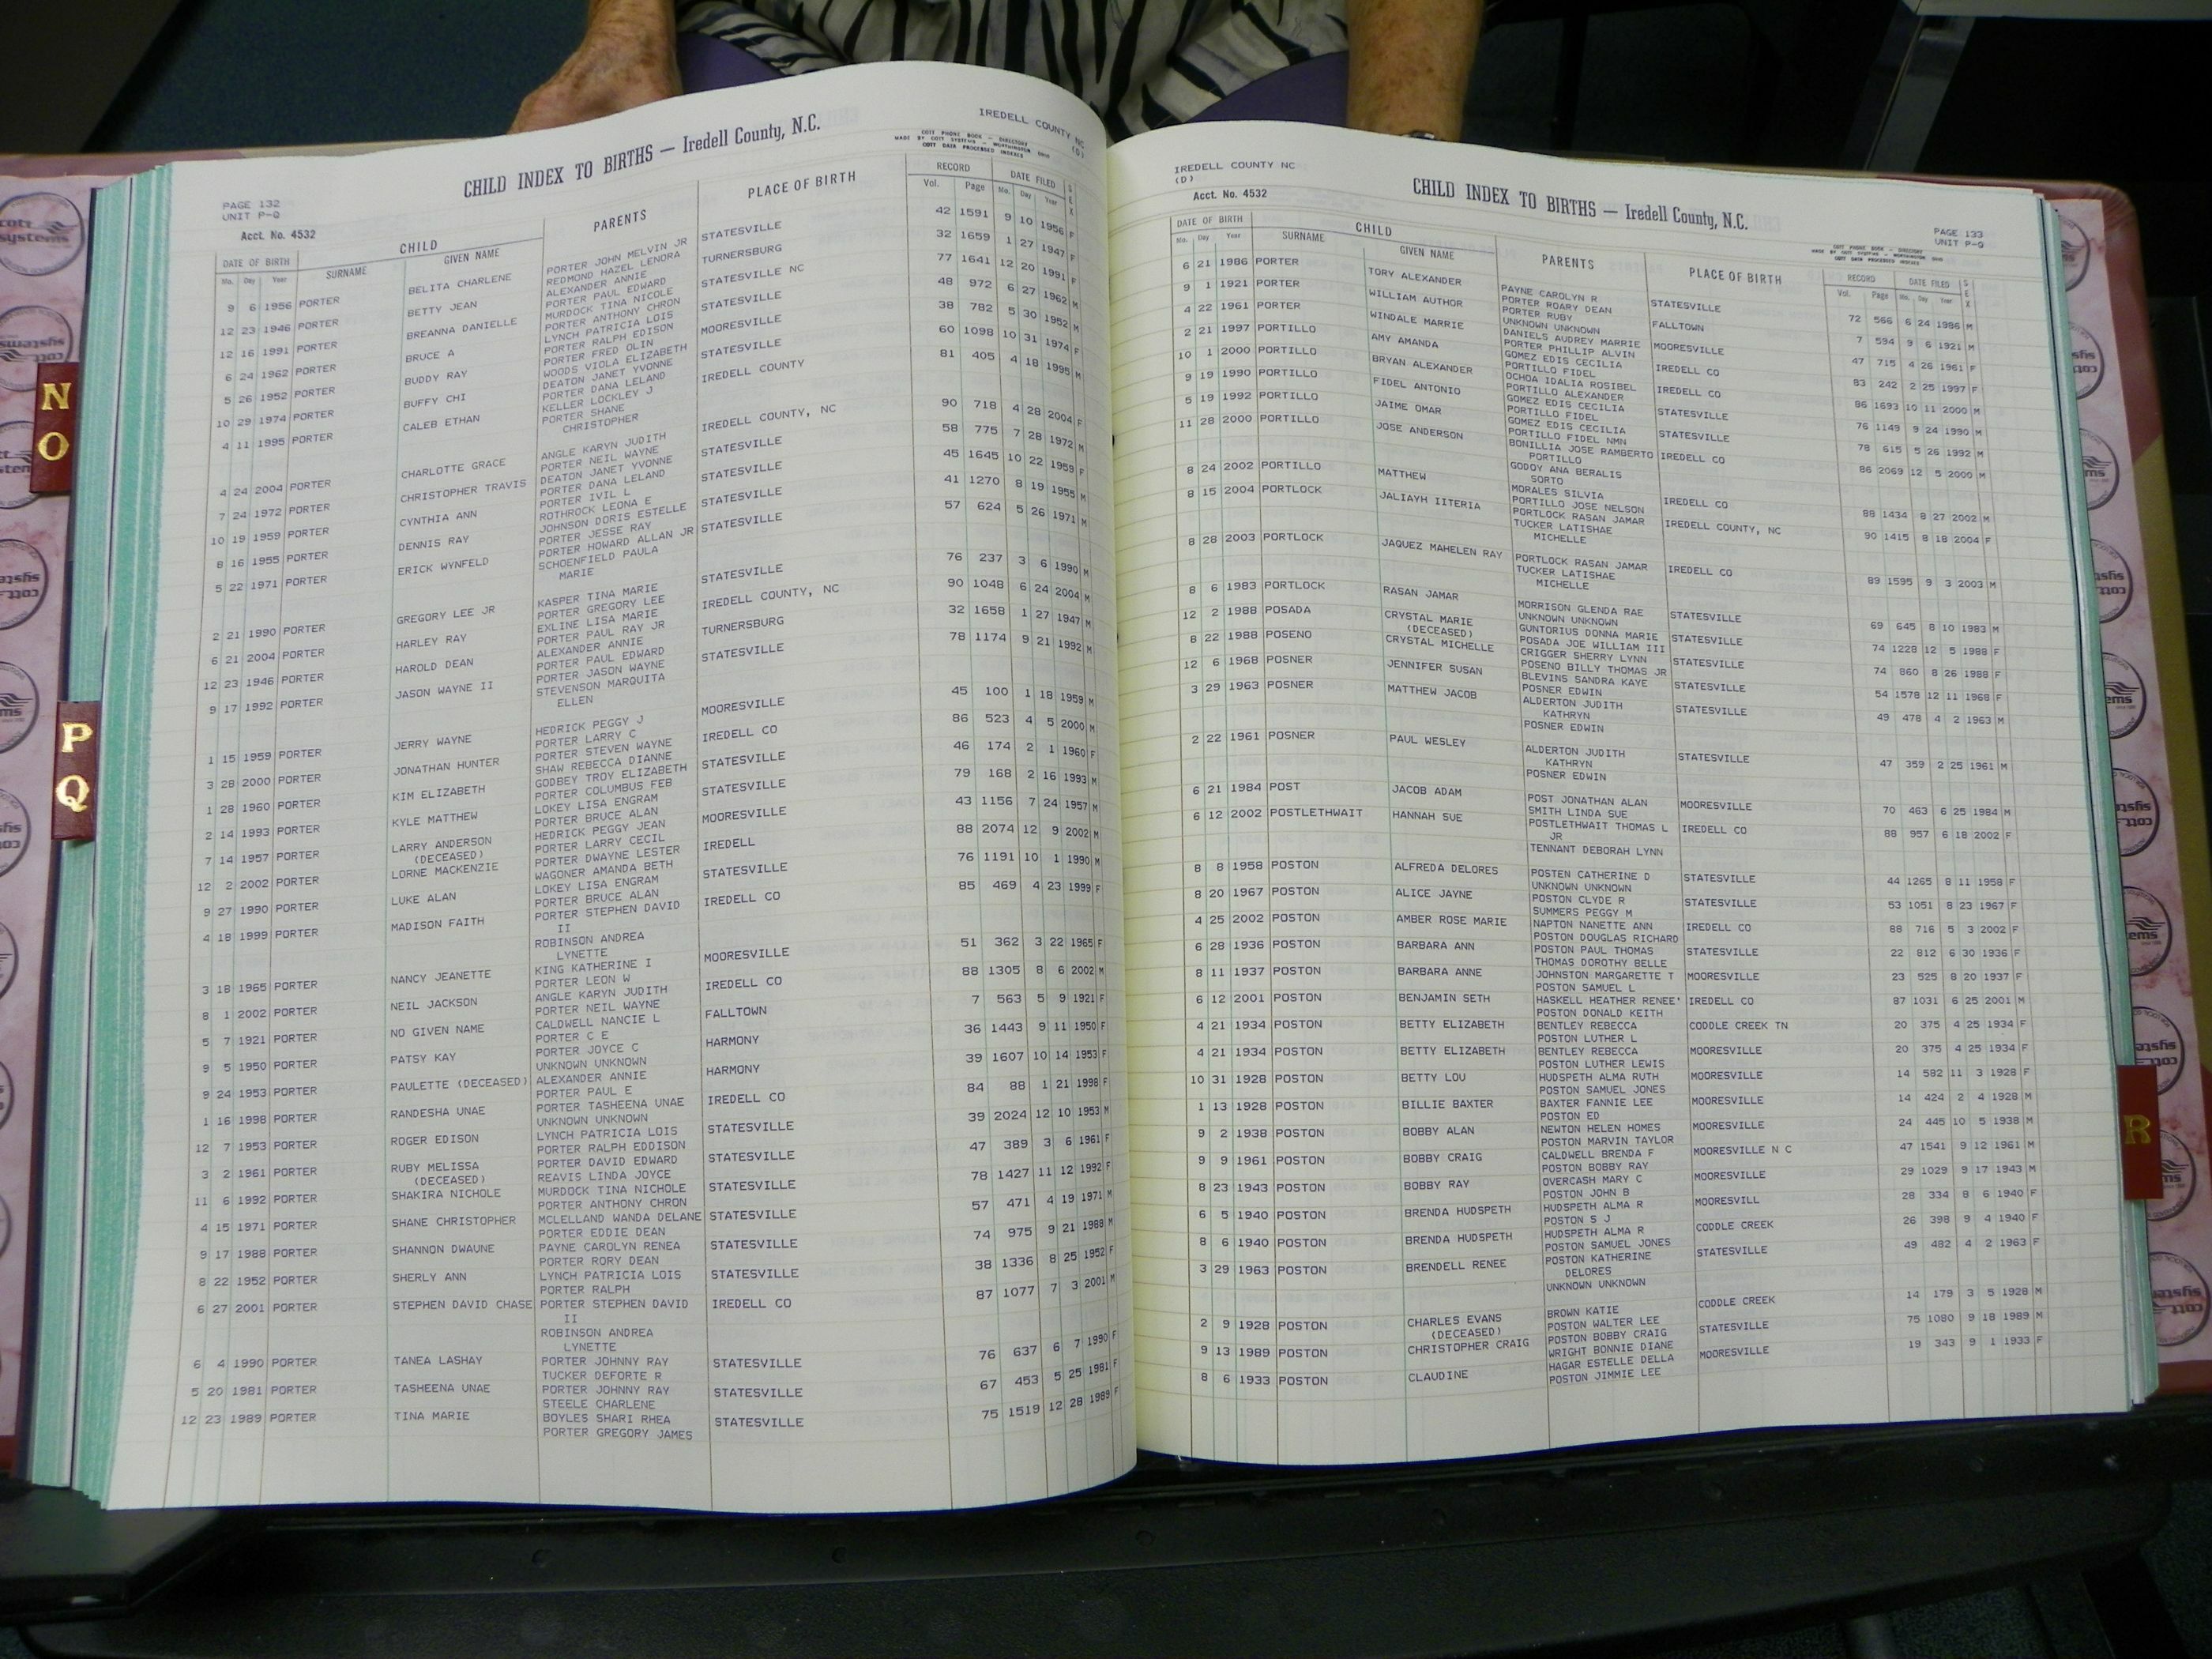 IREDELL COUNTY NC
(D)
CHILD INDEX TO BIRTHS — Iredell County, N.C.
COTT PHONE BOOK - DIRECTORY
MADE BY COTT SYSTEMS - WORTHINGTON OHIO
COTT DATA PROCESSED INDEXES
PAGE 132
UNIT P-Q
Acct. No. 4532
DATE OF BIRTH CHILD PARENTS PLACE OF BIRTH RECORD DATE FILED SEX
Mo. Day Year SURNAME GIVEN NAME Vol. Page Mo. Day Year
9 6 1956 PORTER BELITA CHARLENE PORTER JOHN MELVIN JR STATESVILLE 42 1591 9 10 1956 F
REDMOND HAZEL LENORA
12 23 1946 PORTER BETTY JEAN ALEXANDER ANNIE TURNERSBURG 32 1659 1 27 1947 F
PORTER PAUL EDWARD
12 16 1991 PORTER BREANNA DANIELLE MURDOCK TINA NICOLE STATESVILLE NC 77 1641 12 20 1991 F
PORTER ANTHONY CHRON
6 24 1962 PORTER BRUCE A LYNCH PATRICIA LOIS STATESVILLE 48 972 6 27 1962 M
PORTER RALPH EDISON
5 26 1952 PORTER BUDDY RAY PORTER FRED OLIN MOORESVILLE 38 782 5 30 1952 M
WOODS VIOLA ELIZABETH
10 29 1974 PORTER BUFFY CHI DEATON JANET YVONNE STATESVILLE 60 1098 10 31 1974 F
PORTER DANA LELAND
4 11 1995 PORTER CALEB ETHAN KELLER LOCKLEY J IREDELL COUNTY 81 405 4 18 1995 M
PORTER SHANE
CHRISTOPHER
4 24 2004 PORTER CHARLOTTE GRACE ANGLE KARYN JUDITH IREDELL COUNTY, NC 90 718 4 28 2004 F
PORTER NEIL WAYNE
7 24 1972 PORTER CHRISTOPHER TRAVIS DEATON JANET YVONNE STATESVILLE 58 775 7 28 1972 M
PORTER DANA LELAND
10 19 1959 PORTER CYNTHIA ANN PORTER IVIL L STATESVILLE 45 1645 10 22 1959 F
ROTHROCK LEONA E
8 16 1955 PORTER DENNIS RAY JOHNSON DORIS ESTELLE STATESVILLE 41 1270 8 19 1955 M
PORTER JESSE RAY
5 22 1971 PORTER ERICK WYNFELD PORTER HOWARD ALLAN JR STATESVILLE 57 624 5 26 1971 M
SCHOENFIELD PAULA
MARIE
2 21 1990 PORTER GREGORY LEE JR KASPER TINA MARIE STATESVILLE 76 237 3 6 1990 M
PORTER GREGORY LEE
6 21 2004 PORTER HARLEY RAY EXLINE LISA MARIE IREDELL COUNTY, NC 90 1048 6 24 2004 M
PORTER PAUL RAY JR
12 23 1946 PORTER HAROLD DEAN ALEXANDER ANNIE TURNERSBURG 32 1658 1 27 1947 M
PORTER PAUL EDWARD
9 17 1992 PORTER JASON WAYNE II PORTER JASON WAYNE STATESVILLE 78 1174 9 21 1992 M
STEVENSON MARQUITA
ELLEN
1 15 1959 PORTER JERRY WAYNE HEDRICK PEGGY J MOORESVILLE 45 100 1 18 1959 M
PORTER LARRY C
3 28 2000 PORTER JONATHAN HUNTER PORTER STEVEN WAYNE IREDELL CO 86 523 4 5 2000 M
SHAW REBECCA DIANNE
1 28 1960 PORTER KIM ELIZABETH GODBEY TROY ELIZABETH STATESVILLE 46 174 2 1 1960 F
PORTER COLUMBUS FEB
2 14 1993 PORTER KYLE MATTHEW LOKEY LISA ENGRAM STATESVILLE 79 168 2 16 1993 M
PORTER BRUCE ALAN
7 14 1957 PORTER LARRY ANDERSON HEDRICK PEGGY JEAN MOORESVILLE 43 1156 7 24 1957 M
(DECEASED) PORTER LARRY CECIL
12 2 2002 PORTER LORNE MACKENZIE PORTER DWAYNE LESTER IREDELL 88 2074 12 9 2002 M
WAGONER AMANDA BETH
9 27 1990 PORTER LUKE ALAN LOKEY LISA ENGRAM STATESVILLE 76 1191 10 1 1990 M
PORTER BRUCE ALAN
4 18 1999 PORTER MADISON FAITH PORTER STEPHEN DAVID IREDELL CO 85 469 4 23 1999 F
II
ROBINSON ANDREA
LYNETTE
3 18 1965 PORTER NANCY JEANETTE KING KATHERINE I MOORESVILLE 51 362 3 22 1965 F
PORTER LEON W
8 1 2002 PORTER NEIL JACKSON ANGLE KARYN JUDITH IREDELL CO 88 1305 8 6 2002 M
PORTER NEIL WAYNE
5 7 1921 PORTER NO GIVEN NAME CALDWELL NANCIE L FALLTOWN 7 563 5 9 1921 F
PORTER C E
9 5 1950 PORTER PATSY KAY PORTER JOYCE C HARMONY 36 1443 9 11 1950 F
UNKNOWN UNKNOWN
9 24 1953 PORTER PAULETTE (DECEASED) ALEXANDER ANNIE HARMONY 39 1607 10 14 1953 F
PORTER PAUL E
1 16 1998 PORTER RANDESHA UNAE PORTER TASHEENA UNAE IREDELL CO 84 88 1 21 1998 F
UNKNOWN UNKNOWN
12 7 1953 PORTER ROGER EDISON LYNCH PATRICIA LOIS STATESVILLE 39 2024 12 10 1953 M
PORTER RALPH EDDISON
3 2 1961 PORTER RUBY MELISSA PORTER DAVID EDWARD STATESVILLE 47 389 3 6 1961 F
(DECEASED) REAVIS LINDA JOYCE
11 6 1992 PORTER SHAKIRA NICHOLE MURDOCK TINA NICHOLE STATESVILLE 78 1427 11 12 1992 F
PORTER ANTHONY CHRON
4 15 1971 PORTER SHANE CHRISTOPHER MCLELLAND WANDA DELANE STATESVILLE 57 471 4 19 1971 M
PORTER EDDIE DEAN
9 17 1988 PORTER SHANNON DWAUNE PAYNE CAROLYN RENEA STATESVILLE 74 975 9 21 1988 M
PORTER RORY DEAN
8 22 1952 PORTER SHERLY ANN LYNCH PATRICIA LOIS STATESVILLE 38 1336 8 25 1952 F
PORTER RALPH
6 27 2001 PORTER STEPHEN DAVID CHASE PORTER STEPHEN DAVID IREDELL CO 87 1077 7 3 2001 M
II
ROBINSON ANDREA
LYNETTE
6 4 1990 PORTER TANEA LASHAY PORTER JOHNNY RAY STATESVILLE 76 637 6 7 1990 F
TUCKER DEFORTE R
5 20 1981 PORTER TASHEENA UNAE PORTER JOHNNY RAY STATESVILLE 67 453 5 25 1981 F
STEELE CHARLENE
12 23 1989 PORTER TINA MARIE BOYLES SHARI RHEA STATESVILLE 75 1519 12 28 1989 F
PORTER GREGORY JAMES
IREDELL COUNTY NC
(D)
Acct. No. 4532
CHILD INDEX TO BIRTHS — Iredell County, N.C.
PAGE 133
UNIT P-Q
COTT PHONE BOOK - DIRECTORY
MADE BY COTT SYSTEMS - WORTHINGTON OHIO
COTT DATA PROCESSED INDEXES
DATE OF BIRTH CHILD PARENTS PLACE OF BIRTH RECORD DATE FILED SEX
Mo. Day Year SURNAME GIVEN NAME Vol. Page Mo. Day Year
6 21 1986 PORTER TORY ALEXANDER PAYNE CAROLYN R STATESVILLE 72 566 6 24 1986 M
PORTER ROARY DEAN
9 1 1921 PORTER WILLIAM AUTHOR PORTER RUBY FALLTOWN 7 594 9 6 1921 M
UNKNOWN UNKNOWN
4 22 1961 PORTER WINDALE MARRIE DANIELS AUDREY MARRIE MOORESVILLE 47 715 4 26 1961 F
PORTER PHILLIP ALVIN
2 21 1997 PORTILLO AMY AMANDA GOMEZ EDIS CECILIA IREDELL CO 83 242 2 25 1997 F
PORTILLO FIDEL
10 1 2000 PORTILLO BRYAN ALEXANDER OCHOA IDALIA ROSIBEL IREDELL CO 86 1693 10 11 2000 M
PORTILLO ALEXANDER
9 19 1990 PORTILLO FIDEL ANTONIO GOMEZ EDIS CECILIA STATESVILLE 76 1149 9 24 1990 M
PORTILLO FIDEL
5 19 1992 PORTILLO JAIME OMAR GOMEZ EDIS CECILIA STATESVILLE 78 615 5 26 1992 M
PORTILLO FIDEL NMN
11 28 2000 PORTILLO JOSE ANDERSON BONILLIA JOSE RAMBERTO IREDELL CO 86 2069 12 5 2000 M
PORTILLO
GODOY ANA BERALIS
SORTO
8 24 2002 PORTILLO MATTHEW MORALES SILVIA IREDELL CO 88 1434 8 27 2002 M
PORTILLO JOSE NELSON
8 15 2004 PORTLOCK JALIAYH IITERIA PORTLOCK RASAN JAMAR IREDELL COUNTY, NC 90 1415 8 18 2004 F
TUCKER LATISHAE
MICHELLE
8 28 2003 PORTLOCK JAQUEZ MAHELEN RAY PORTLOCK RASAN JAMAR IREDELL CO 89 1595 9 3 2003 M
TUCKER LATISHAE
MICHELLE
8 6 1983 PORTLOCK RASAN JAMAR MORRISON GLENDA RAE STATESVILLE 69 645 8 10 1983 M
UNKNOWN UNKNOWN
12 2 1988 POSADA CRYSTAL MARIE GUNTORIUS DONNA MARIE STATESVILLE 74 1228 12 5 1988 F
(DECEASED) POSADA JOE WILLIAM III
8 22 1988 POSENO CRYSTAL MICHELLE CRIGGER SHERRY LYNN STATESVILLE 74 860 8 26 1988 F
POSENO BILLY THOMAS JR
12 6 1968 POSNER JENNIFER SUSAN BLEVINS SANDRA KAYE STATESVILLE 54 1578 12 11 1968 F
POSNER EDWIN
3 29 1963 POSNER MATTHEW JACOB ALDERTON JUDITH STATESVILLE 49 478 4 2 1963 M
KATHRYN
POSNER EDWIN
2 22 1961 POSNER PAUL WESLEY ALDERTON JUDITH STATESVILLE 47 359 2 25 1961 M
KATHRYN
POSNER EDWIN
6 21 1984 POST JACOB ADAM POST JONATHAN ALAN MOORESVILLE 70 463 6 25 1984 M
SMITH LINDA SUE
6 12 2002 POSTLETHWAIT HANNAH SUE POSTLETHWAIT THOMAS L IREDELL CO 88 957 6 18 2002 F
JR
TENNANT DEBORAH LYNN
8 8 1958 POSTON ALFREDA DELORES POSTEN CATHERINE D STATESVILLE 44 1265 8 11 1958 F
UNKNOWN UNKNOWN
8 20 1967 POSTON ALICE JAYNE POSTON CLYDE R STATESVILLE 53 1051 8 23 1967 F
SUMMERS PEGGY M
4 25 2002 POSTON AMBER ROSE MARIE NAPTON NANETTE ANN IREDELL CO 88 716 5 3 2002 F
POSTON DOUGLAS RICHARD
6 28 1936 POSTON BARBARA ANN POSTON PAUL THOMAS STATESVILLE 22 812 6 30 1936 F
THOMAS DOROTHY BELLE
8 11 1937 POSTON BARBARA ANNE JOHNSTON MARGARETTE T MOORESVILLE 23 525 8 20 1937 F
POSTON SAMUEL L
6 12 2001 POSTON BENJAMIN SETH HASKELL HEATHER RENEE' IREDELL CO 87 1031 6 25 2001 M
POSTON DONALD KEITH
4 21 1934 POSTON BETTY ELIZABETH BENTLEY REBECCA CODDLE CREEK TN 20 375 4 25 1934 F
POSTON LUTHER L
4 21 1934 POSTON BETTY ELIZABETH BENTLEY REBECCA MOORESVILLE 20 375 4 25 1934 F
POSTON LUTHER LEWIS
10 31 1928 POSTON BETTY LOU HUDSPETH ALMA RUTH MOORESVILLE 14 582 11 3 1928 F
POSTON SAMUEL JONES
1 13 1928 POSTON BILLIE BAXTER BAXTER FANNIE LEE MOORESVILLE 14 424 2 4 1928 M
POSTON ED
9 2 1938 POSTON BOBBY ALAN NEWTON HELEN HOMES MOORESVILLE 24 445 10 5 1938 M
POSTON MARVIN TAYLOR
9 9 1961 POSTON BOBBY CRAIG CALDWELL BRENDA F MOORESVILLE N C 47 1541 9 12 1961 M
POSTON BOBBY RAY
8 23 1943 POSTON BOBBY RAY OVERCASH MARY C MOORESVILLE 29 1029 9 17 1943 M
POSTON JOHN B
6 5 1940 POSTON BRENDA HUDSPETH HUDSPETH ALMA R MOORESVILL 28 334 8 6 1940 F
POSTON S J
8 6 1940 POSTON BRENDA HUDSPETH HUDSPETH ALMA R CODDLE CREEK 26 398 9 4 1940 F
POSTON SAMUEL JONES
3 29 1963 POSTON BRENDELL RENEE POSTON KATHERINE STATESVILLE 49 482 4 2 1963 F
DELORES
UNKNOWN UNKNOWN
2 9 1928 POSTON CHARLES EVANS BROWN KATIE CODDLE CREEK 14 179 3 5 1928 M
(DECEASED) POSTON WALTER LEE
9 13 1989 POSTON CHRISTOPHER CRAIG POSTON BOBBY CRAIG STATESVILLE 75 1080 9 18 1989 M
WRIGHT BONNIE DIANE
8 6 1933 POSTON CLAUDINE HAGAR ESTELLE DELLA MOORESVILLE 19 343 9 1 1933 F
POSTON JIMMIE LEE
N
O
P
Q
R
cott
systems